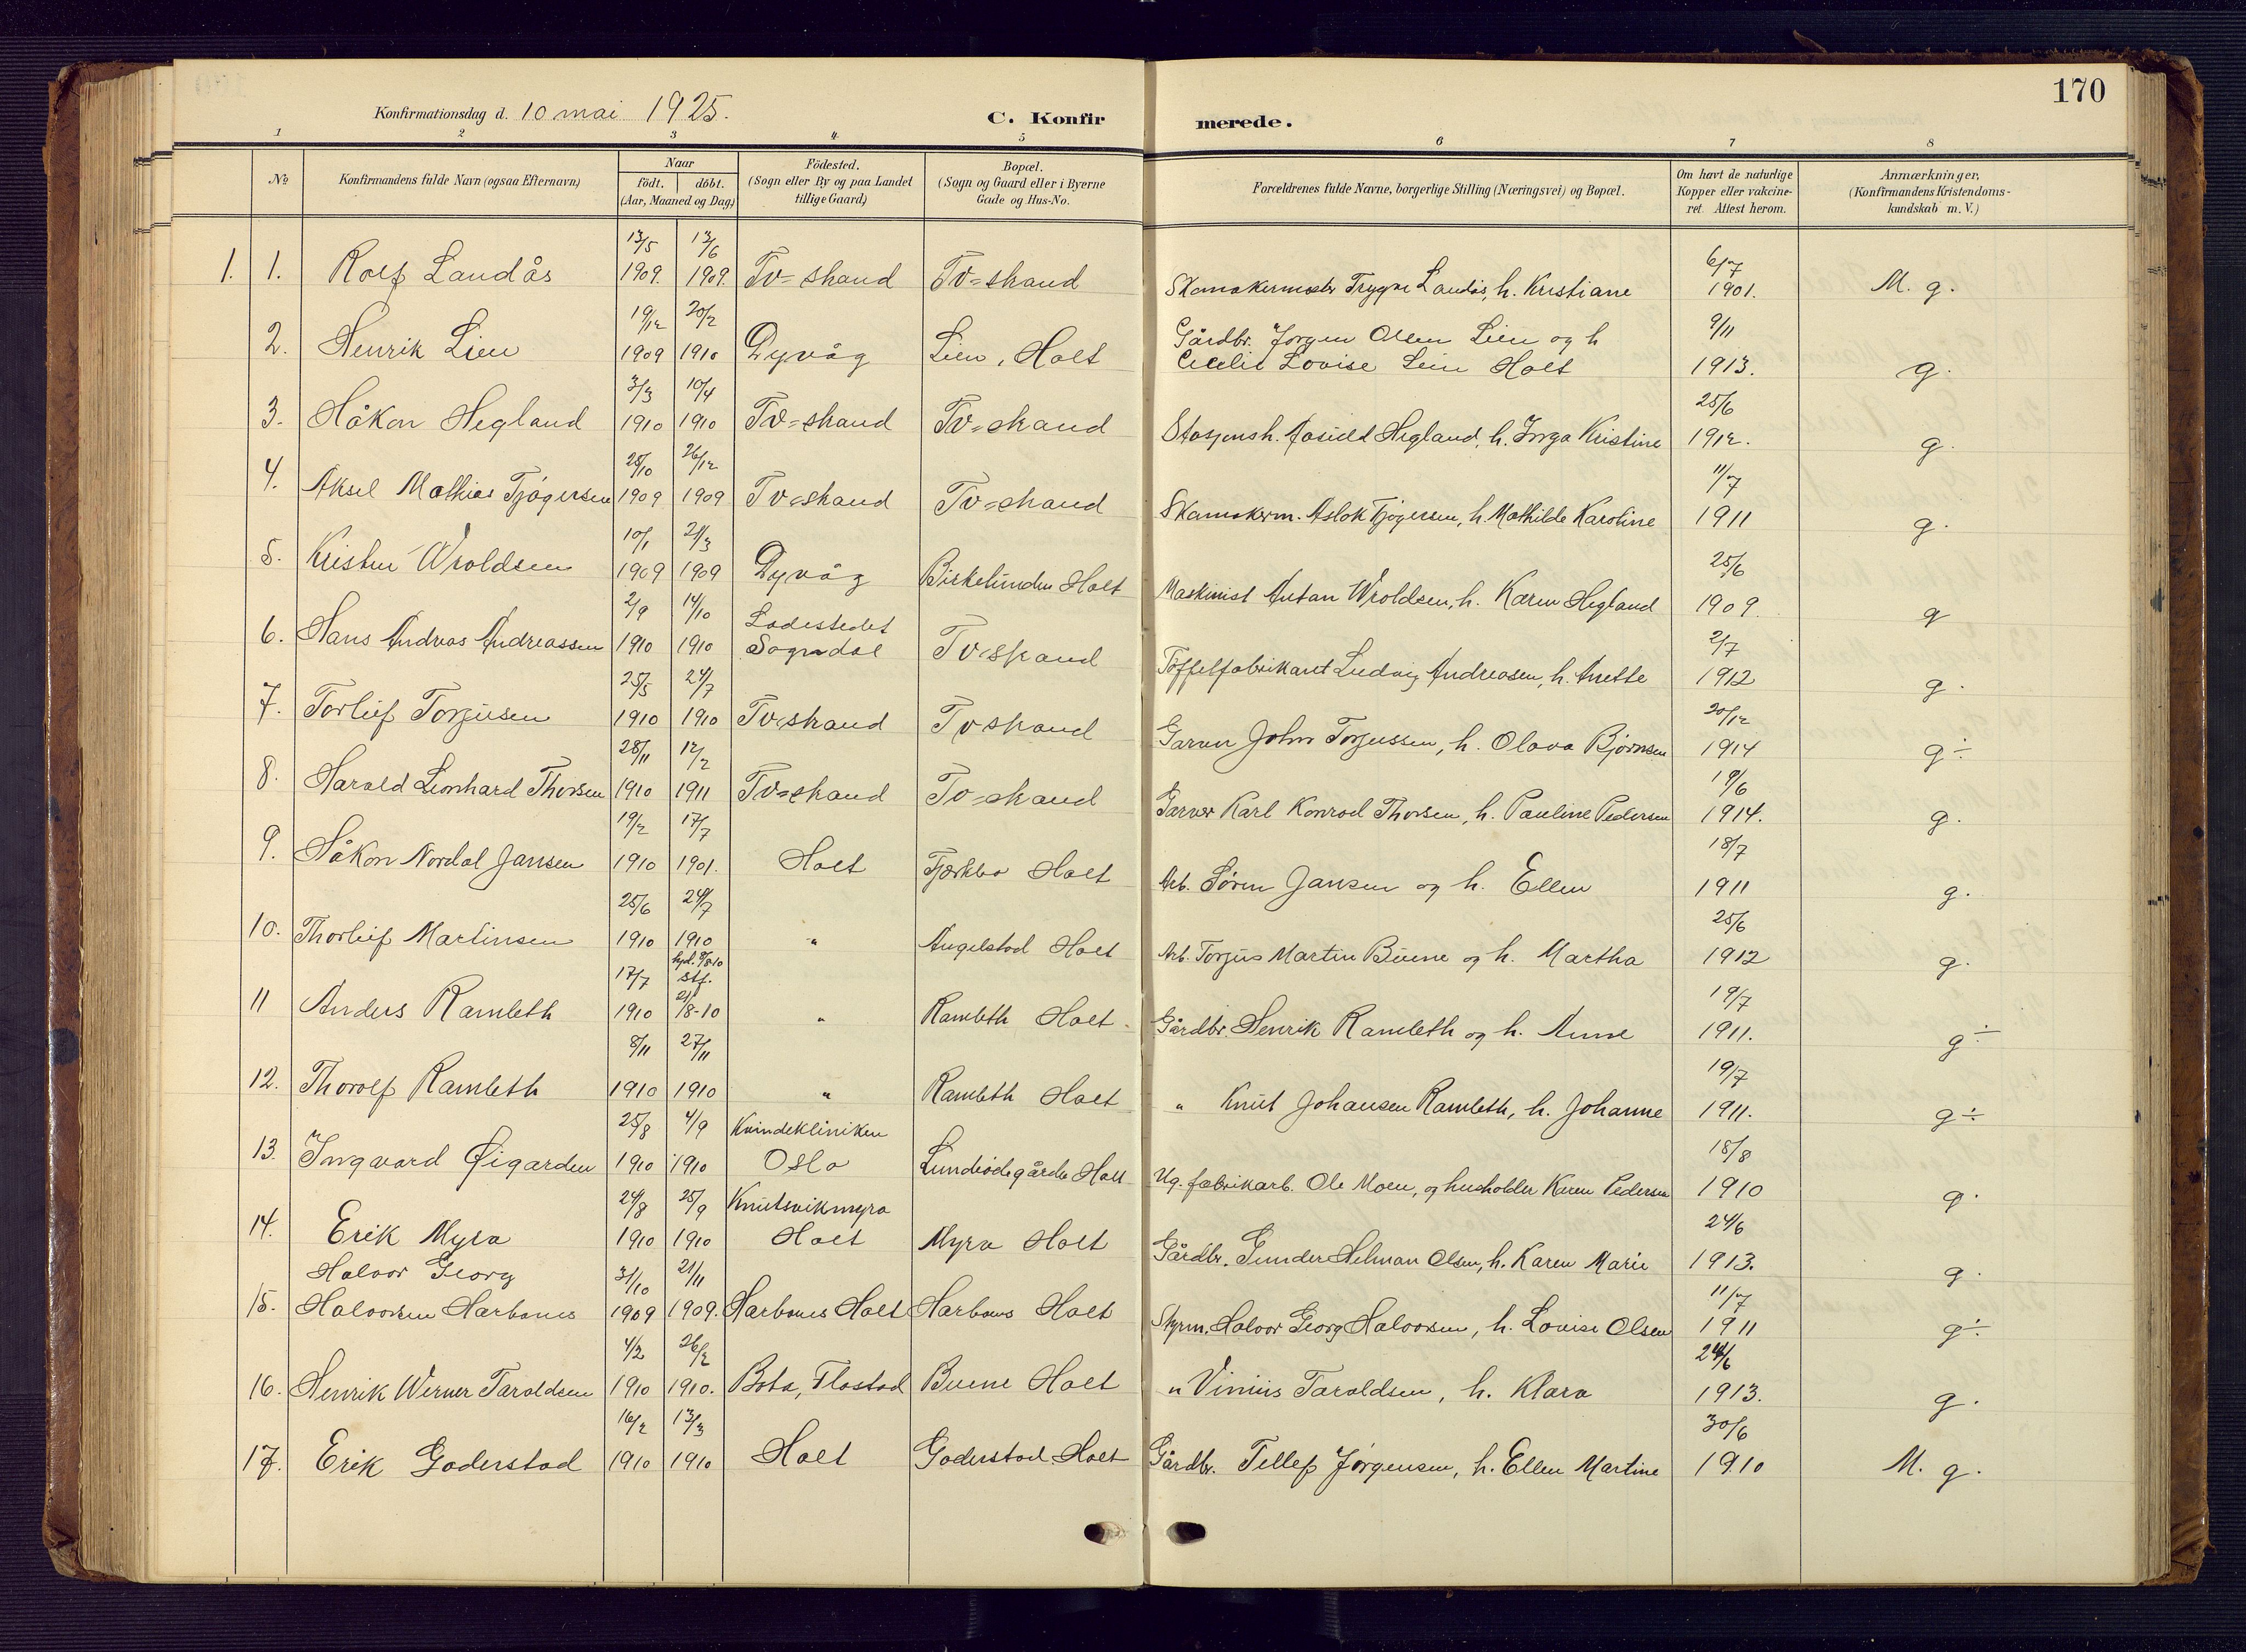 170
Konfirmationsdag d. 10 mai 1925.
C. Konfirmerede.
1 2 3 4 5 6 7 8
No
Konfirmandens fulde Navn (ogsaa Efternavn)
Naar
födt. | döbt.
(Aar, Maaned og Dag)
Födested.
(Sogn eller By og paa Landet
tillige Gaard)
Bopæl.
(Sogn og Gaard eller i Byerne
Gade og Hus-No.
Forældrenes fulde Navne, borgerlige Stilling (Næringsvei) og Bopæl.
Om havt de naturlige
Kopper eller vakcine-
ret. Attest herom.
Anmærkninger,
(Konfirmandens Kristendoms-
kundskab m. V.)
13/5 13/6 6/7
1. 1. Rolf Landås 1909. 1909. Tv=strand Tv=strand Skomakermester Trygve Landås, h. Kristiane 1901. M. g.
19/12 20/2 Gårdbr. Jørgen Olsen Lien og h 9/11
2. Henrik Lien 1909 1910 Dyvåg Lien, Holt Cecilie Lovise Lien Holt 1913. g.
3/3 10/4 25/6
3. Håkon Hegland 1910 1910 Tv=strand Tv=strand Stasjonsh. Aasulv Hegland, h. Inga Kristine 1912. g.
25/10 26/12 11/7
4. Aksel Mathias Tjøgersen 1909 1909 Tv=strand Tv=strand Skomakerm. Aslak Tjøgersen, h. Mathilde Karoline 1911 g.
10/1 21/3 25/6
5. Kristen Wroldsen 1909 1909 Dyvåg Birkelunden Holt Maskinist Anton Wroldsen, h. Karen Hegland 1909. g
2/9 14/10 Ladestedet 2/7
6. Hans Andreas Andreassen 1910 1910 Sogndal Tv=strand Tøffelfabrikant Ludvig Andreasen, h. Anette 1912 g.
25/5 24/7 20/12
7. Torleif Torjusen 1910 1910 Tv=strand Tvstrand Garver John Torjussen, h. Olava Bjørnsen 1914 g÷
28/11 12/2 19/6
8. Harald Leonhard Thorsen 1910 1911 Tv=strand Tv=strand Garver Karl Konrad Thorsen, h. Pauline Pedersen 1914. g.
19/2 17/7 18/7
9. Håkon Nordal Jansen 1910 1901. Holt Tjærkbo Holt Arb. Søren Jansen og h. Ellen 1911 g.
25/6 24/7 25/6
10. Thorleif Martinsen 1910 1910 " Angelstad Holt Arb. Torjus Martin Buene og h. Martha 1912 g.
17/7 hpd. 9/8-10 stf. 19/7
11 Anders Ramleth 1910 21/8-10 " Ramleth Holt. Gårdbr. Henrik Ramleth og h. Anne 1911. g÷
8/11 27/11 19/7
12. Thorolf Ramleth 1910 1910 " Ramleth Holt " Knut Johansen Ramleth, h. Johanne 1911. g÷
25/8 4/9 Kvindekliniken 18/8
13. Ingvard Øigarden 1910 1910 Oslo Lundeødegården Holt Ug. fabrikarb. Ole Moen, og husholder Karen Pedersen 1910 g.
24/8 25/9 Knutsvikmyra 24/6
14. Erik Myra 1910 1910 Holt Myra Holt Gårdbr. Gunder Helman Olsen, h. Karen Marie 1913. g.
Halvor Georg 31/10 21/11 11/7
15. Halvorsen Harbones 1909 1909. Harbones Holt Harbones Holt Styrm. Halvor Georg Halvorsen, h. Lovise Olsen 1911 g÷
4/2 26/2 24/6
16. Henrik Werner Taraldsen 1910 1910. Bota, Flostad Buene Holt " Vinius Taraldsen, h. Klara 1913. g.
16/2 13/3 30/6
17. Erik Goderstad 1910 1910 Holt Goderstad Holt Gårdbr. Tellef Jørgensen, h. Ellen Martine 1910 M. g.